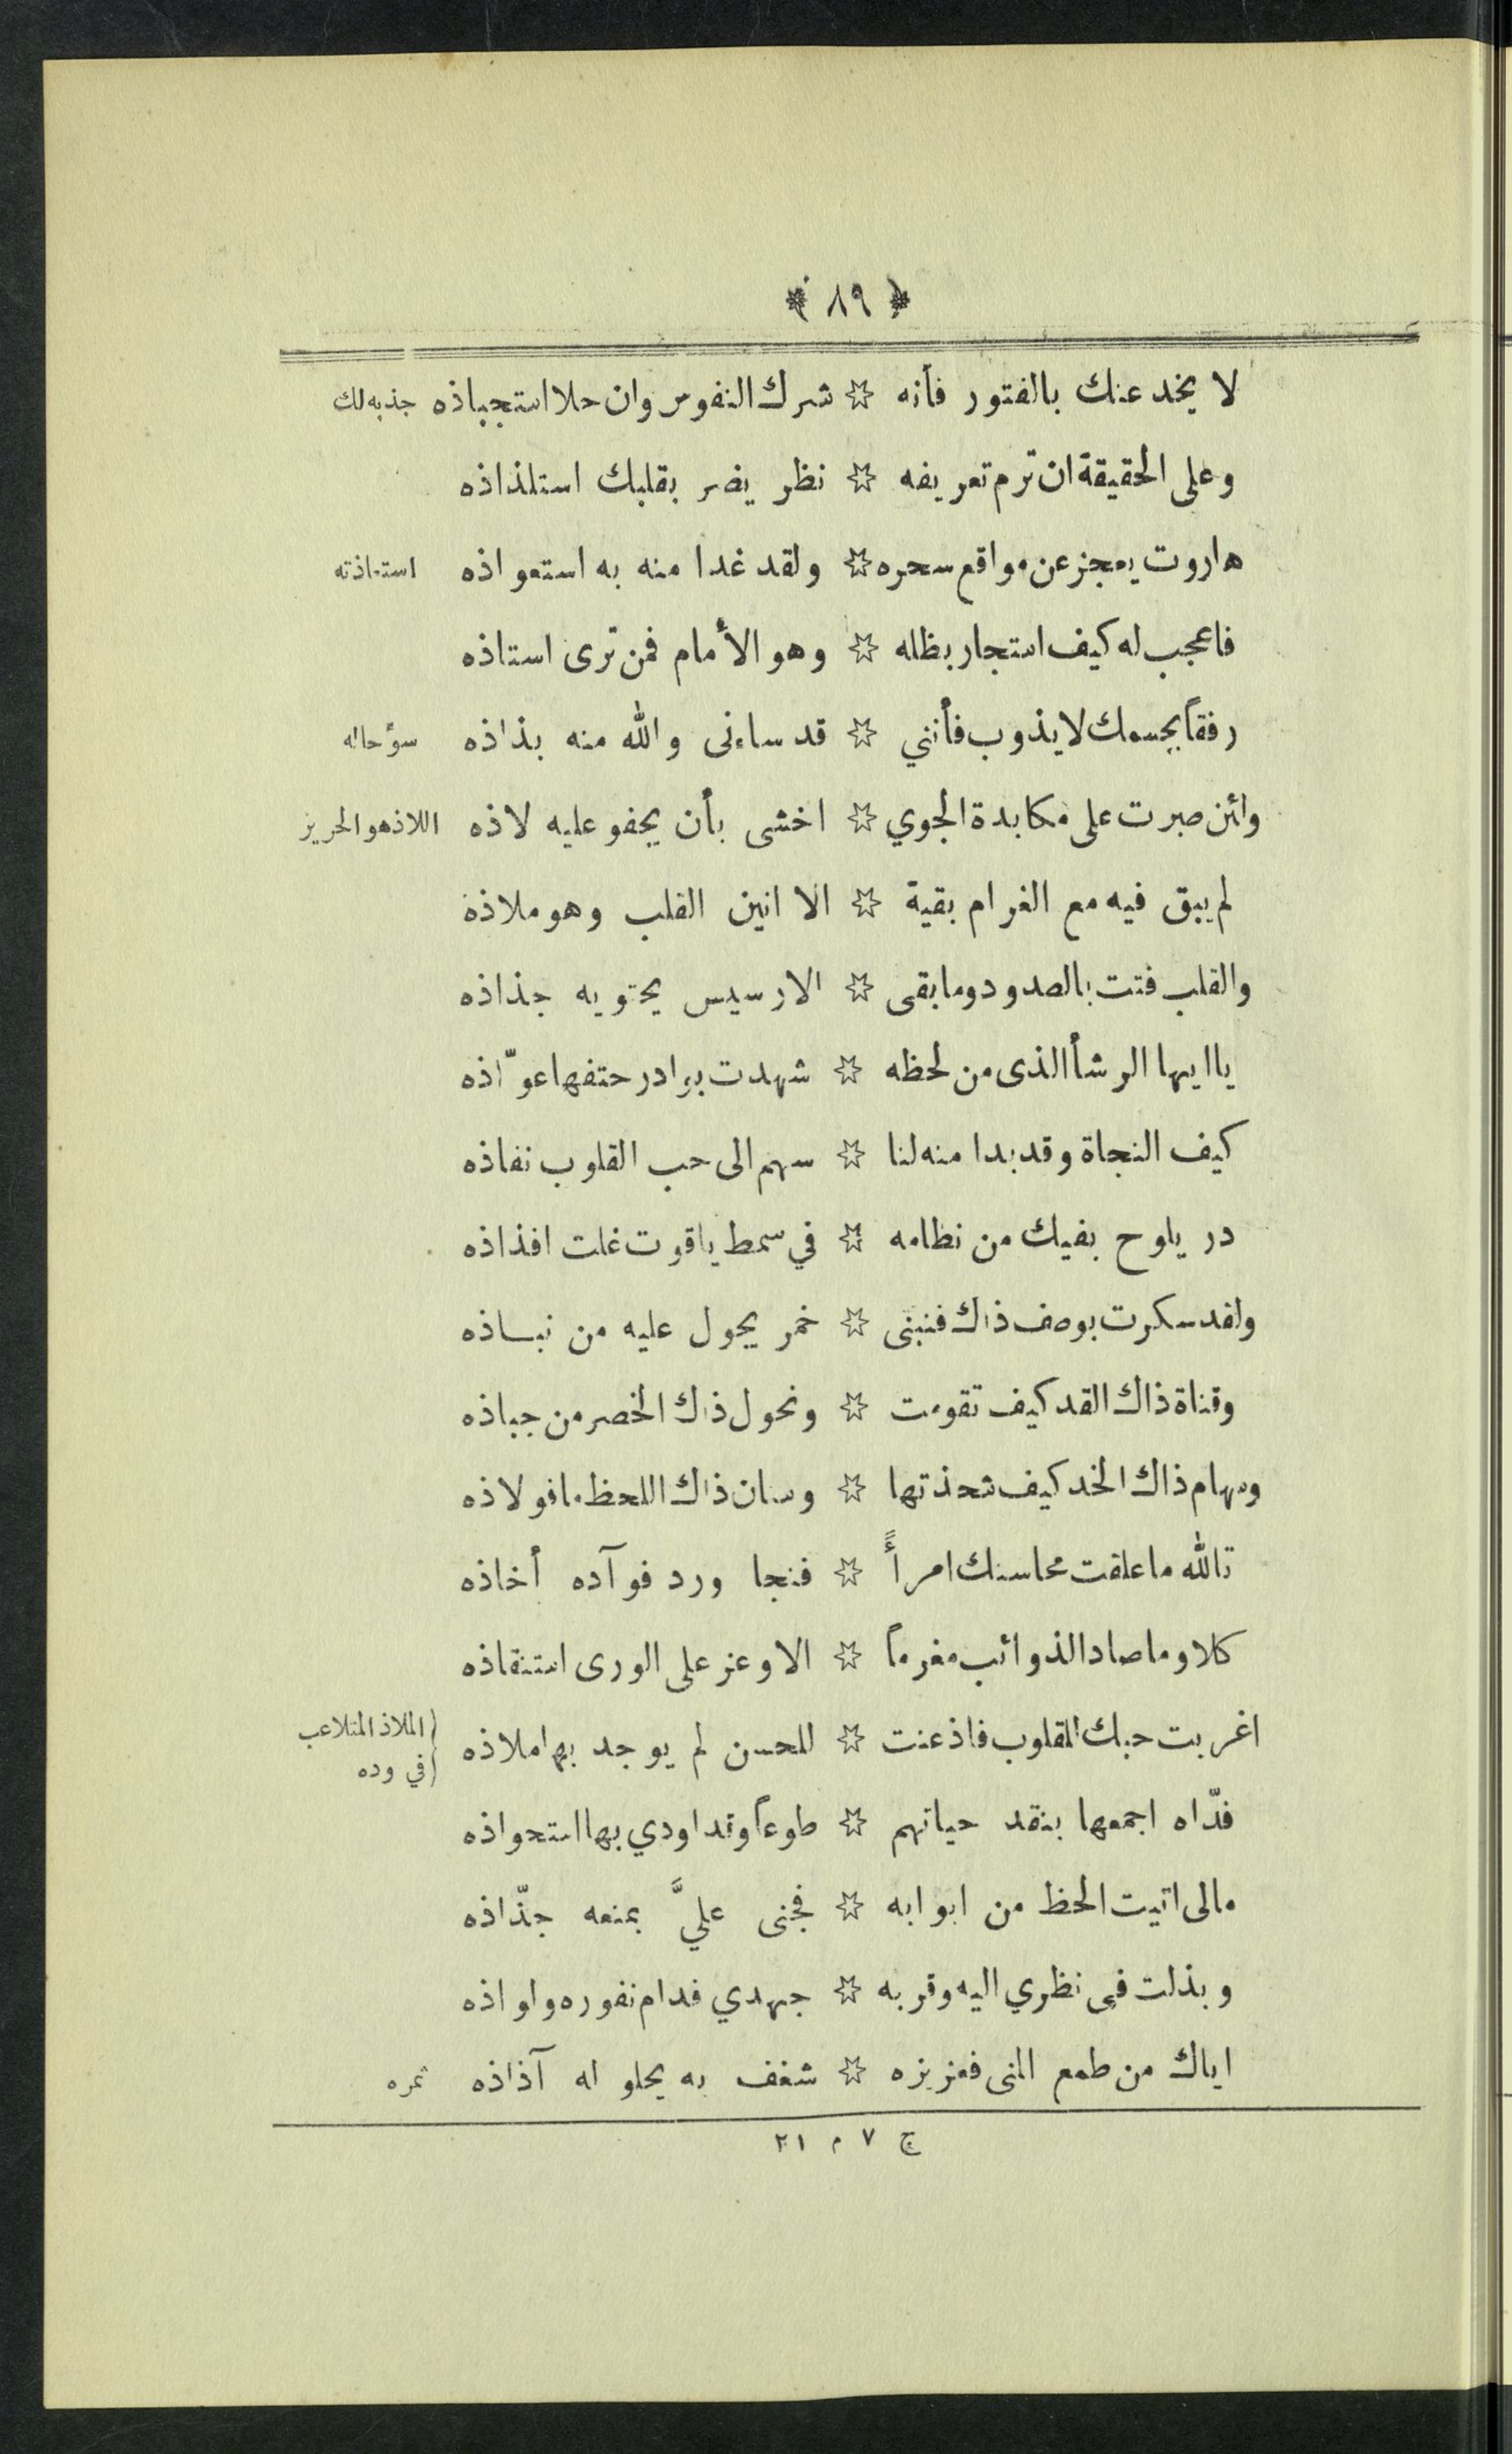 ﴿ ٨٩ ﴾
لا يخدعنك بالفتور فأنه ☆ شرك النفوس وان حلا استجباذه جذبه لك
وعلى الحقيقة ان ترم تعريفه ☆ نظر يضر بقلبك استلذاذه
هاروت يعجز عن مواقع سحره ☆ ولقد غدا منه به استعواذه استعاذته
فاعجب له كيف استجار بظله ☆ وهو الأمام فمن ترى استاذه
رفقاً بجسمك لا يذوب فأنني ☆ قد ساءنى والله منه بذاذه سؤ حاله
ولئن صبرت على مكابدة الجوي ☆ اخشى بأن يجفو عليه لاذه اللاذ هو الحرير
لم يبق فيه مع الغرام بقية ☆ الا انين القلب وهو ملاذه
والقلب فتت بالصدود وما بقى ☆ الا رسيس يحتويه جذاذه
يا ايها الرشأ الذى من لحظه ☆ شهدت بوادر حتفها عوّاذه
كيف النجاة وقد بدا منه لنا ☆ سهم الى حب القلوب نفاذه
در يلوح بفيك من نظامه ☆ في سمط ياقوت غلت افذاذه
ولقد سكرت بوصف ذاك فنبنى ☆ خمر يجول عليه من نباذه
وقناة ذاك القد كيف تقومت ☆ ونحول ذاك الخصر من جباذه
وسهام ذاك الخد كيف شحذتها ☆ وسان ذاك اللحظ ما فولاذه
تالله ما علقت محاسنك امرأً ☆ فنجا ورد فوآده أخاذه
كلا وما صاد الذوائب مغرماً ☆ الا وعز على الورى استنقاذه
اغربت حبك القلوب فاذعنت ☆ للحسن لم يوجد بها ملاذه (الملاذ المتلاعب
(في وده
فدّاه اجمعها بنقد حياتهم ☆ طوعاً وقد اودي بها استحواذه
مالى اتيت الحظ من ابوابه ☆ فجنى عليَّ بمنعه جذّاذه
وبذلت فى نظري اليه وقربه ☆ جهدي فدام نفوره ولواذه
اياك من طمع المنى فعزيزه ☆ شغف به يحلو له آذاذه ثمره
ج ٧ م ٢١